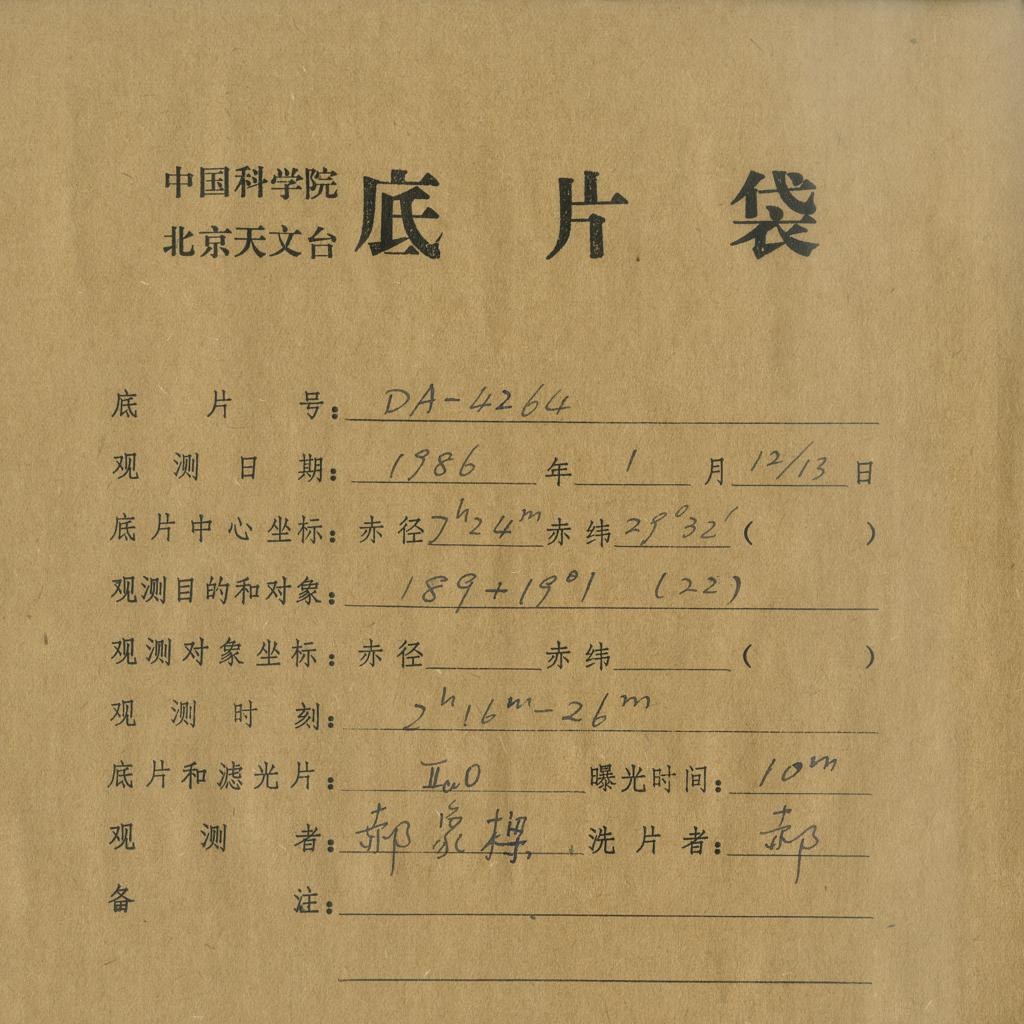 中国科学院
北京天文台 底片袋
底片号：DA-4264
观测日期：1986年1月12/13日
底片中心坐标：赤径7h24m赤纬29°32′（ ）
观测目的和对象：189+19°1 (22)
观测对象坐标：赤径 赤纬 （ ）
观测时刻：2h16m-26m
底片和滤光片：IIaO 曝光时间：10m
观测者：郝象樑 洗片者：郝
备注：